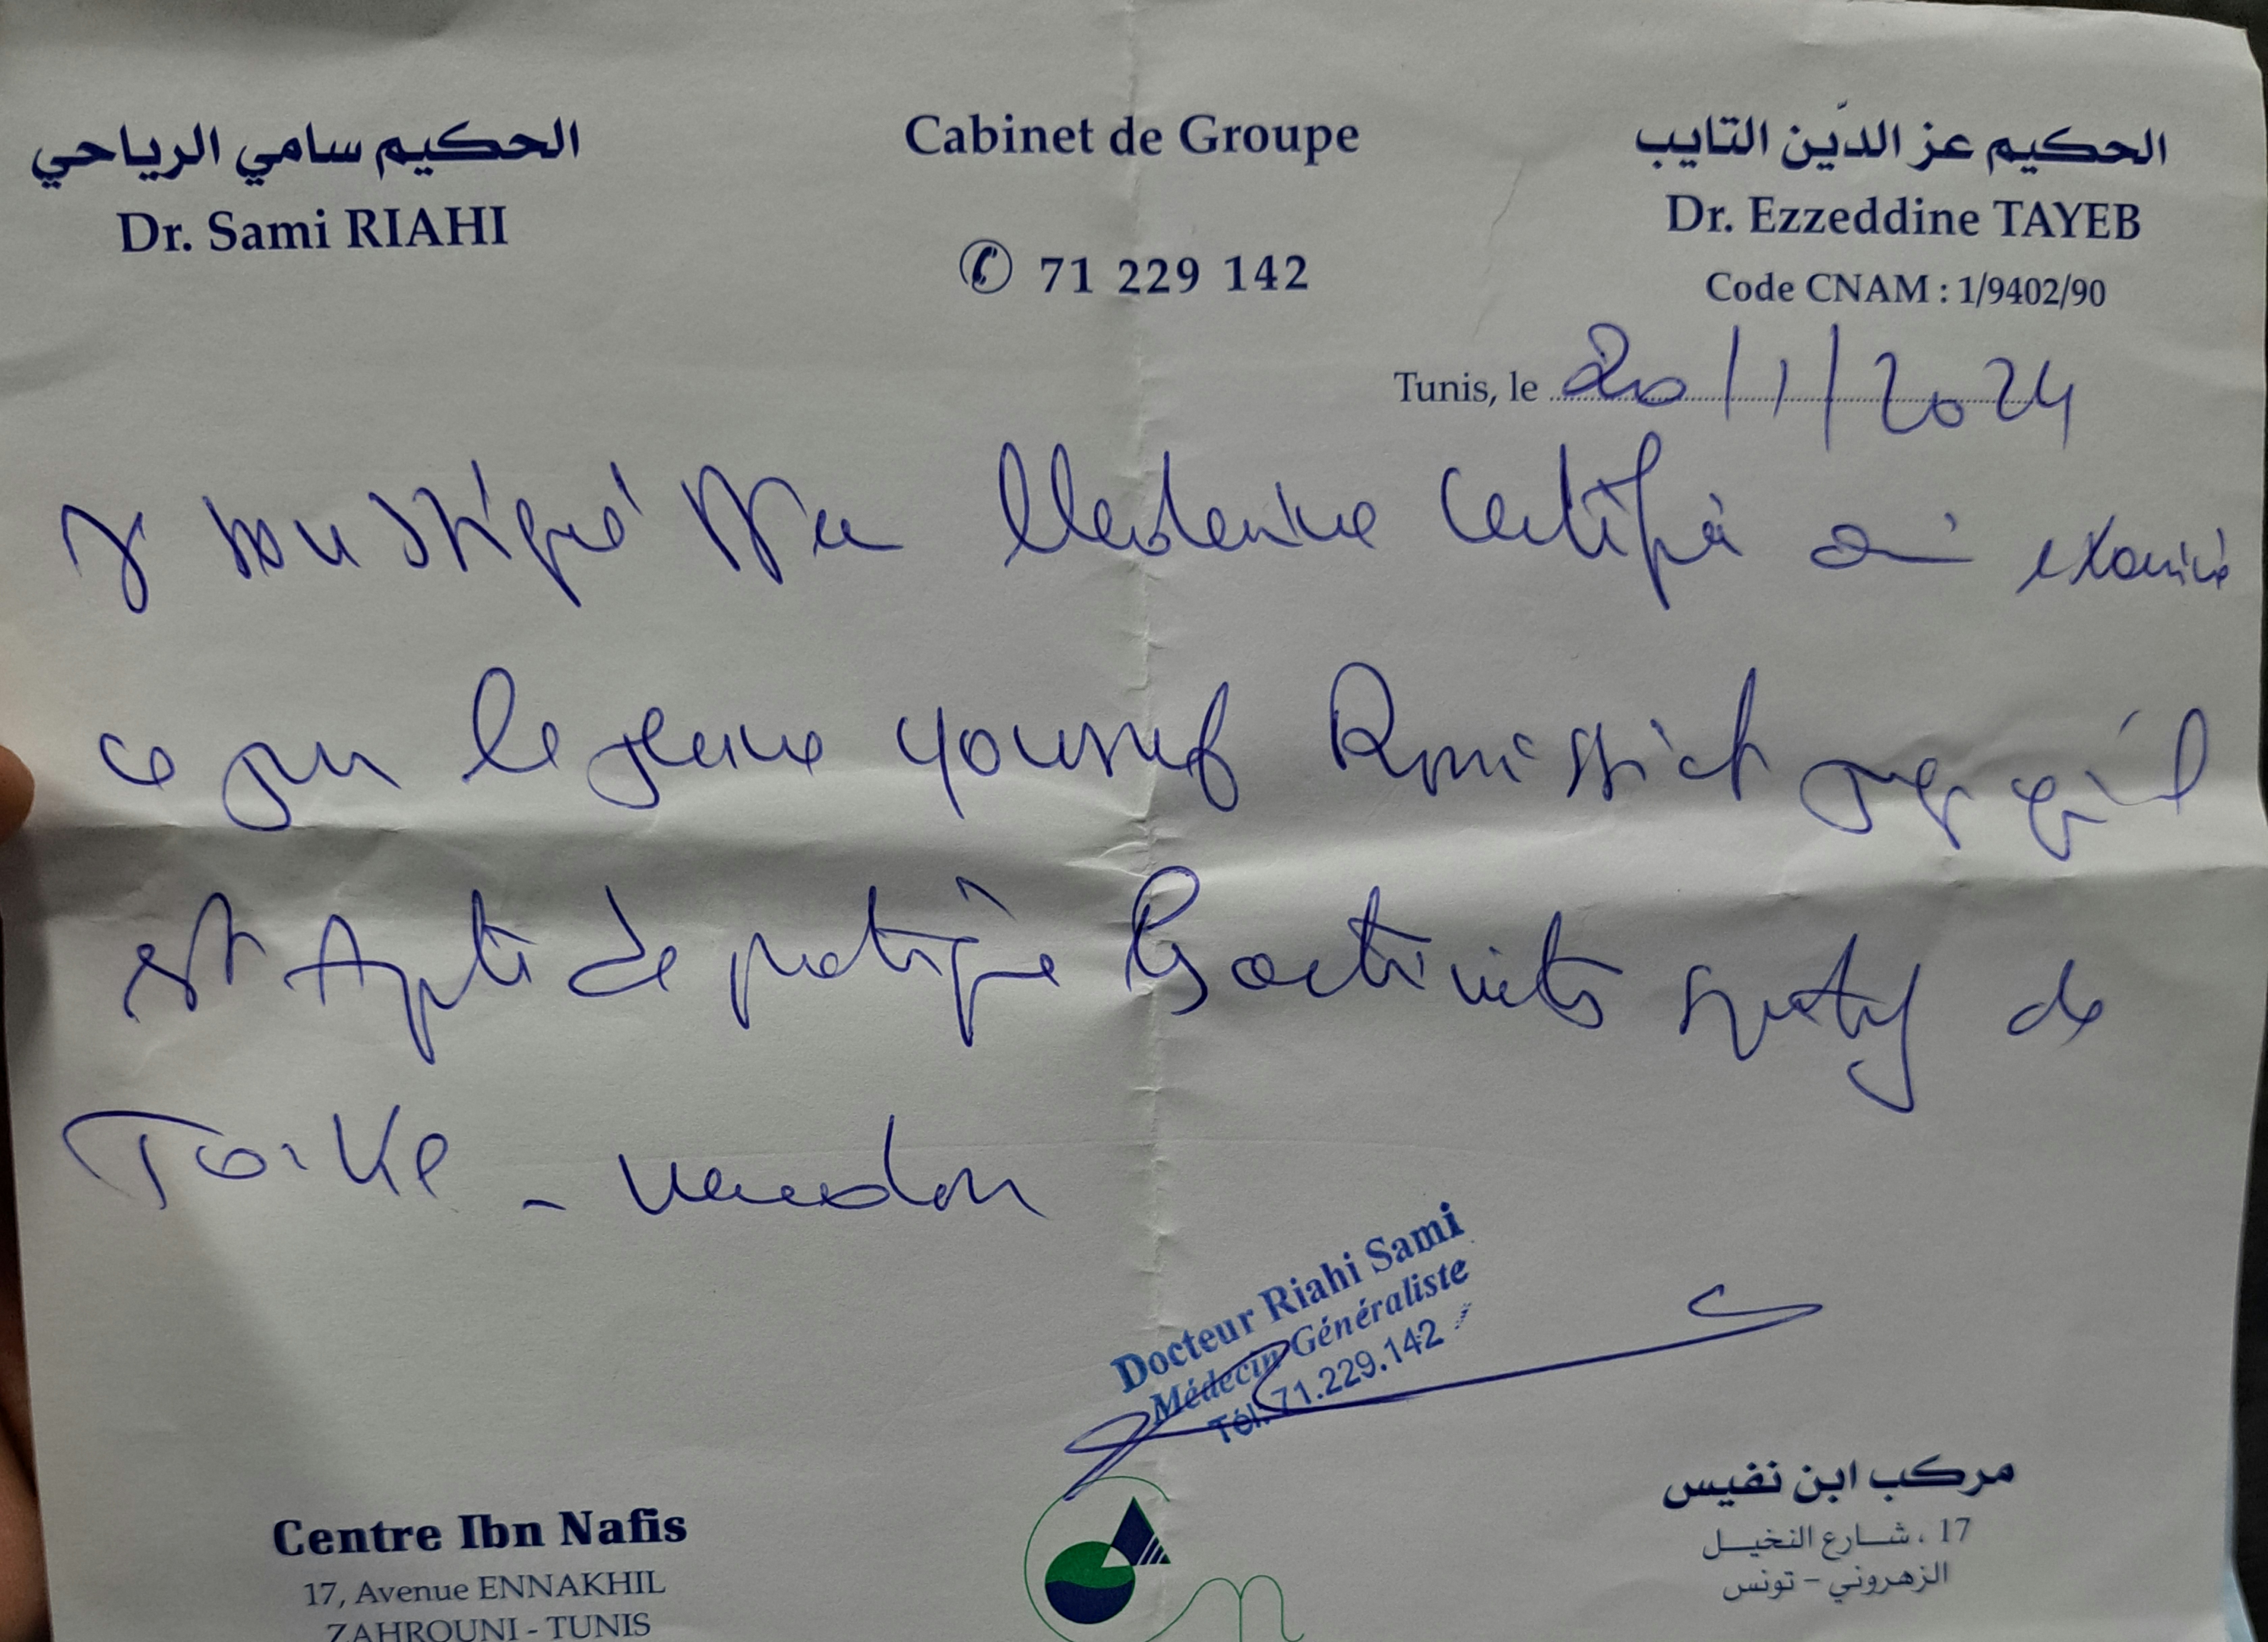 الحكيم سامي الرياحي
Dr. Sami RIAHI
Cabinet de Groupe
71 229 142
الحكيم عز الدّين التايب
Dr. Ezzeddine TAYEB
Code CNAM : 1/9402/90
Tunis, le 20/1/2024
Je soussigné Médecine Certifié examiné
ce jour le jeune youssef qu'il
est Apte de pratiquer les activités sportif de
Docteur Riahi Sami
Médecin Généraliste
Tél: 71.229.142
Centre Ibn Nafis
17, Avenue ENNAKHIL
ZAHROUNI - TUNIS
مركب ابن نفيس
17 ، شارع النخيل
الزهروني - تونس